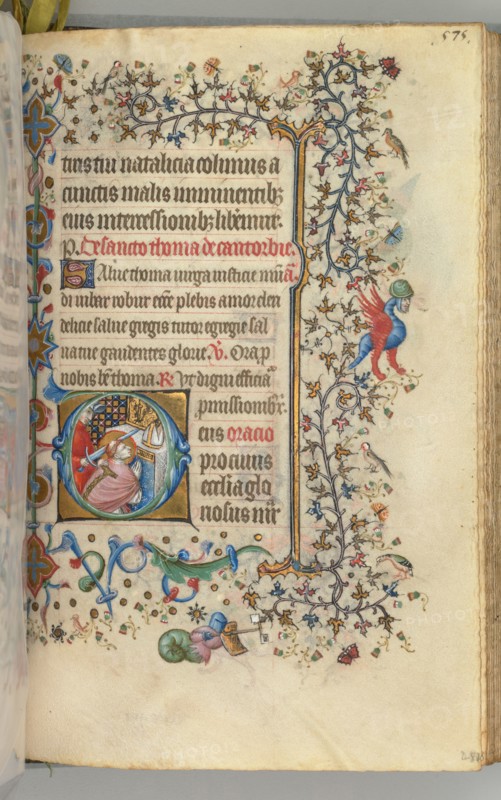 575
tuis tui natalicia colimus a
cunctis malis imminentib;
eius intercessionib; liberemur.
p. De sancto thoma de cantorbie.
Salue thoma uirga iusticie mūdi
di iubar robur eccē plebis amor cleri
delicie salue gregis tutor egregie sal
ua tue gaudentes glorie. V. Ora p
nobis bē thoma. R. Ut digni efficia
pmissionib; x.
eius oracio
pro cuius
ecclīa glo
riosus